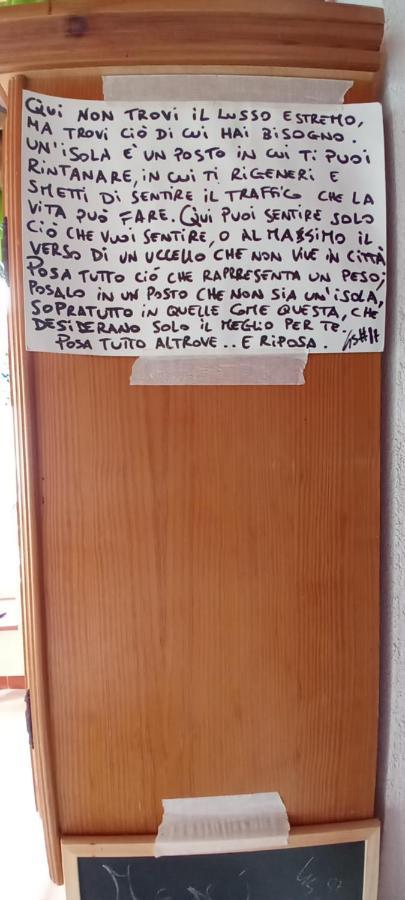 QUI NON TROVI IL LUSSO ESTREMO,
MA TROVI CIÒ DI CUI HAI BISOGNO.
UN'ISOLA È UN POSTO IN CUI TI PUOI
RINTANARE, IN CUI TI RIGENERI E
SMETTI DI SENTIRE IL TRAFFICO CHE LA
VITA PUÒ FARE. QUI PUOI SENTIRE SOLO
CIÒ CHE VUOI SENTIRE, O AL MASSIMO IL
VERSO DI UN UCCELLO CHE NON VIVE IN CITTÀ
POSA TUTTO CIÒ CHE RAPPRESENTA UN PESO;
POSALO IN UN POSTO CHE NON SIA UN'ISOLA,
SOPRATUTTO IN QUELLE COME QUESTA, CHE
DESIDERANO SOLO IL MEGLIO PER TE.
POSA TUTTO ALTROVE.. E RIPOSA.